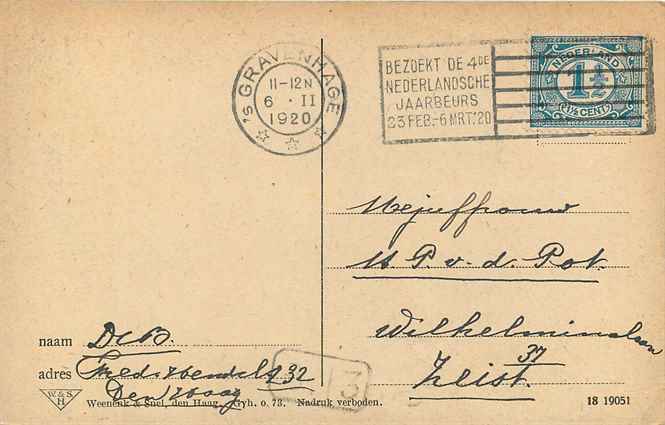 's GRAVENHAGE
11-12N
6 · II
1920
BEZOEKT DE 4DE
NEDERLANDSCHE
JAARBEURS
23 FEB.-6 MRT. '20
NEDERLAND
1½
1½ CENT
Mejuffrouw
P. v. d. Pot.
Wilhelminalaan
37
Zeist.
naam
adres
32
Den Haag
3
W. & S.
H
Weenenk & Snel, den Haag. Gyh. o. 73. Nadruk verboden.
18 19051